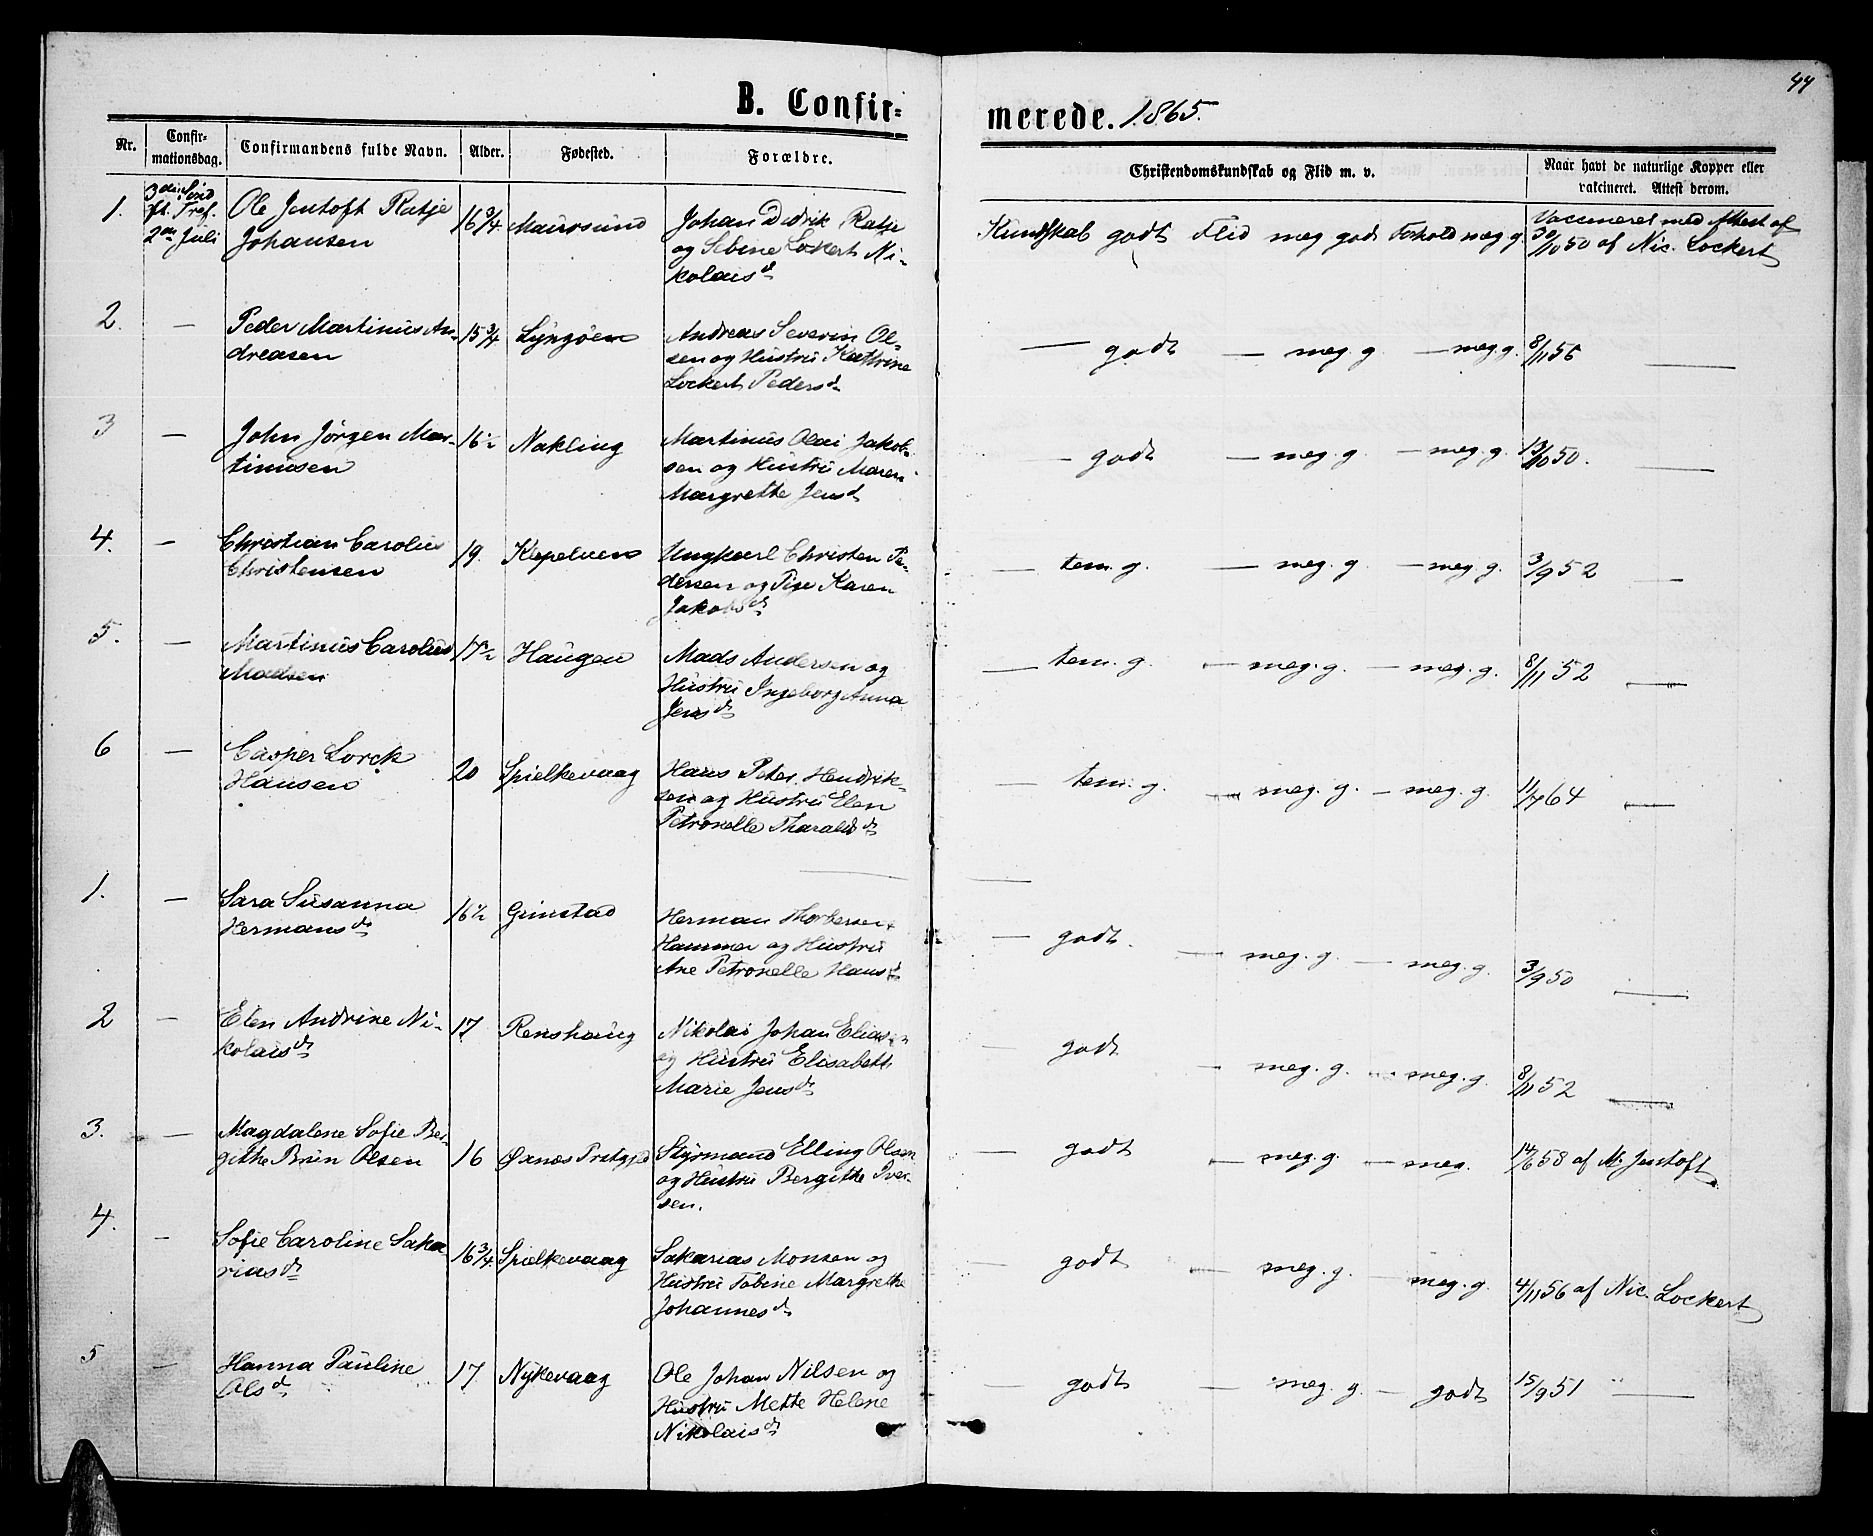 44
B. Confirmerede. 1865.
Nr. Confirmationsdag. Confirmandens fulde Navn. Alder. Fødested. Forældre. Christendomskundskab og Flid m. v. Naar havt de naturlige Kopper eller vakcineret. Attest derom.
1. 3die Sønd ft. Tref. 2den Juli
Ole Jentoft Ratje
Johansen
16 3/4 Maursund
Johan Didrik Ratje
og Sebine Lockert Ni-
kolaisd
Kundskab godt Flid meg godt Forhold meg g.
Vaccineret med Attest af
30/10 50 af Nic. Lockert
2. —
Peder Martinus An-
dreasen
15 3/4 Lyngøen
Andreas Severin Ol-
sen og Hustru Kathrine
Lockert Pedersd
— godt — meg. g — meg. g. 8/11 55 —
3 —
John Jörgen Mar-
tinusen
16 1/2 Nakling
Martinus Olai Jakob-
sen og Hustru Maren
Margrethe Jensd
— godt — meg. g. — meg. g. 13/10 50. —
4. —
Christian Carolius
Christensen
19. Kepelven
Ungkarl Christen Pe-
dersen og Pige Karen
Jakobsd
— tem. g. — meg. g — meg. g. 3/9 52 —
5. —
Martinus Carolius
Madsen
17 1/2 Haugen
Mads Andersen og
Hustru Ingeborg Anna
Jensd
— tem. g. — meg. g. — meg. g. 8/11 52 —
6 —
Casper Lorck
Hansen
20 Spielkevaag
Hans Peter Hendrik-
sen og Hustru Elen
Petronelle Tharaldsd
— tem. g. — meg. g. — meg. g. 11/7 64 —
1. —
Sara Susanna
Hermansd
16 1/2 Grimstad
Herman Thorbersen
Hammer og Hustru
Ane Petronelle Hansd
— godt. — meg. g. — meg. g. 3/9 50 —
2 —
Elen Andrine Ni-
kolaisd
17 Renshaug
Nikolai Johan Elias
og Hustru Elisabeth
Marie Jensd
— godt — meg. g. — meg. g. 8/11 52 —
3. —
Magdalene Sofie Ber-
githe Brun Olsen
16 Øxnæs Prstgjd
Styrmand Elling Olsen
og Hustru Bergithe Iver-
sen.
— godt — meg. g. — meg. 14/6 58 af M. Jentoft
4. —
Sofie Caroline Saka-
riasd
16 3/4 Spielkevaag
Sakarias Monsen og
Hustru Tobine Margrethe
Johannesd
— godt — meg. g. — meg. g. 4/11 56 af Nic. Lockert
5 —
Hanna Pauline
Olsd
17 Nykevaag
Ole Johan Nilsen og
Hustru Mette Helene
Nikolaisd
— godt — meg. g. — godt 15/9 51 —